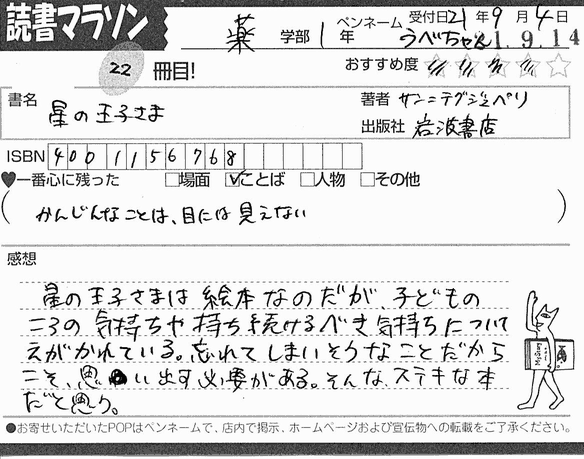 読書マラソン
受付日21年9月4日
薬 学部 1 年 ペンネーム うべちゃん 1.9.14
22 冊目!
おすすめ度
書名 星の王子さま
著者 サン=テグジュペリ
出版社 岩波書店
ISBN 4001156768
♥一番心に残った □場面 ☑ことば □人物 □その他
(かんじんなことは、目には見えない)
感想
星の王子さまは絵本なのだが、子どもの
ころの気持ちや持ち続けるべき気持ちについて
えがかれている。忘れてしまいそうなことだから
こそ、思い出す必要がある。そんな、ステキな本
だと思う。
●お寄せいただいたPOPはペンネームで、店内で掲示、ホームページおよび宣伝物への転載をご了承ください。